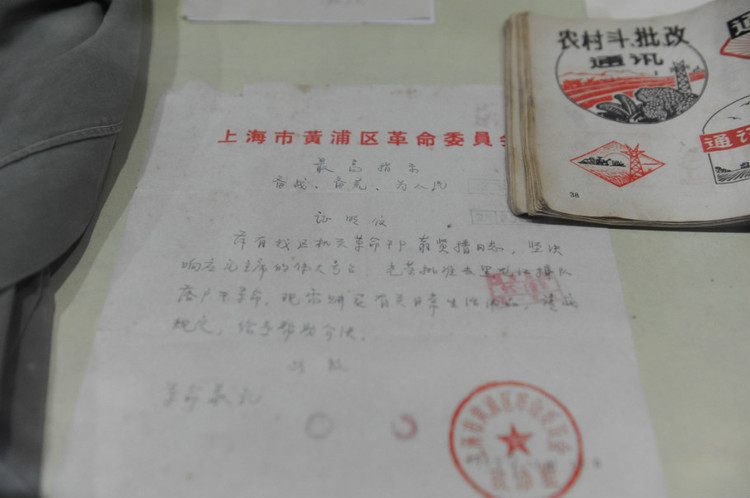 上海市黄浦区革命委员会
最高指示
备战、备荒、为人民
证明信
兹有我区机关革命干部 同志，坚决
响应毛主席的伟大号召 批准去 插队
落户干革命。现需购买有关日常生活用品，请按
规定，给予帮助解决。
此致
革命敬礼
农村斗、批改
通讯
38
通讯